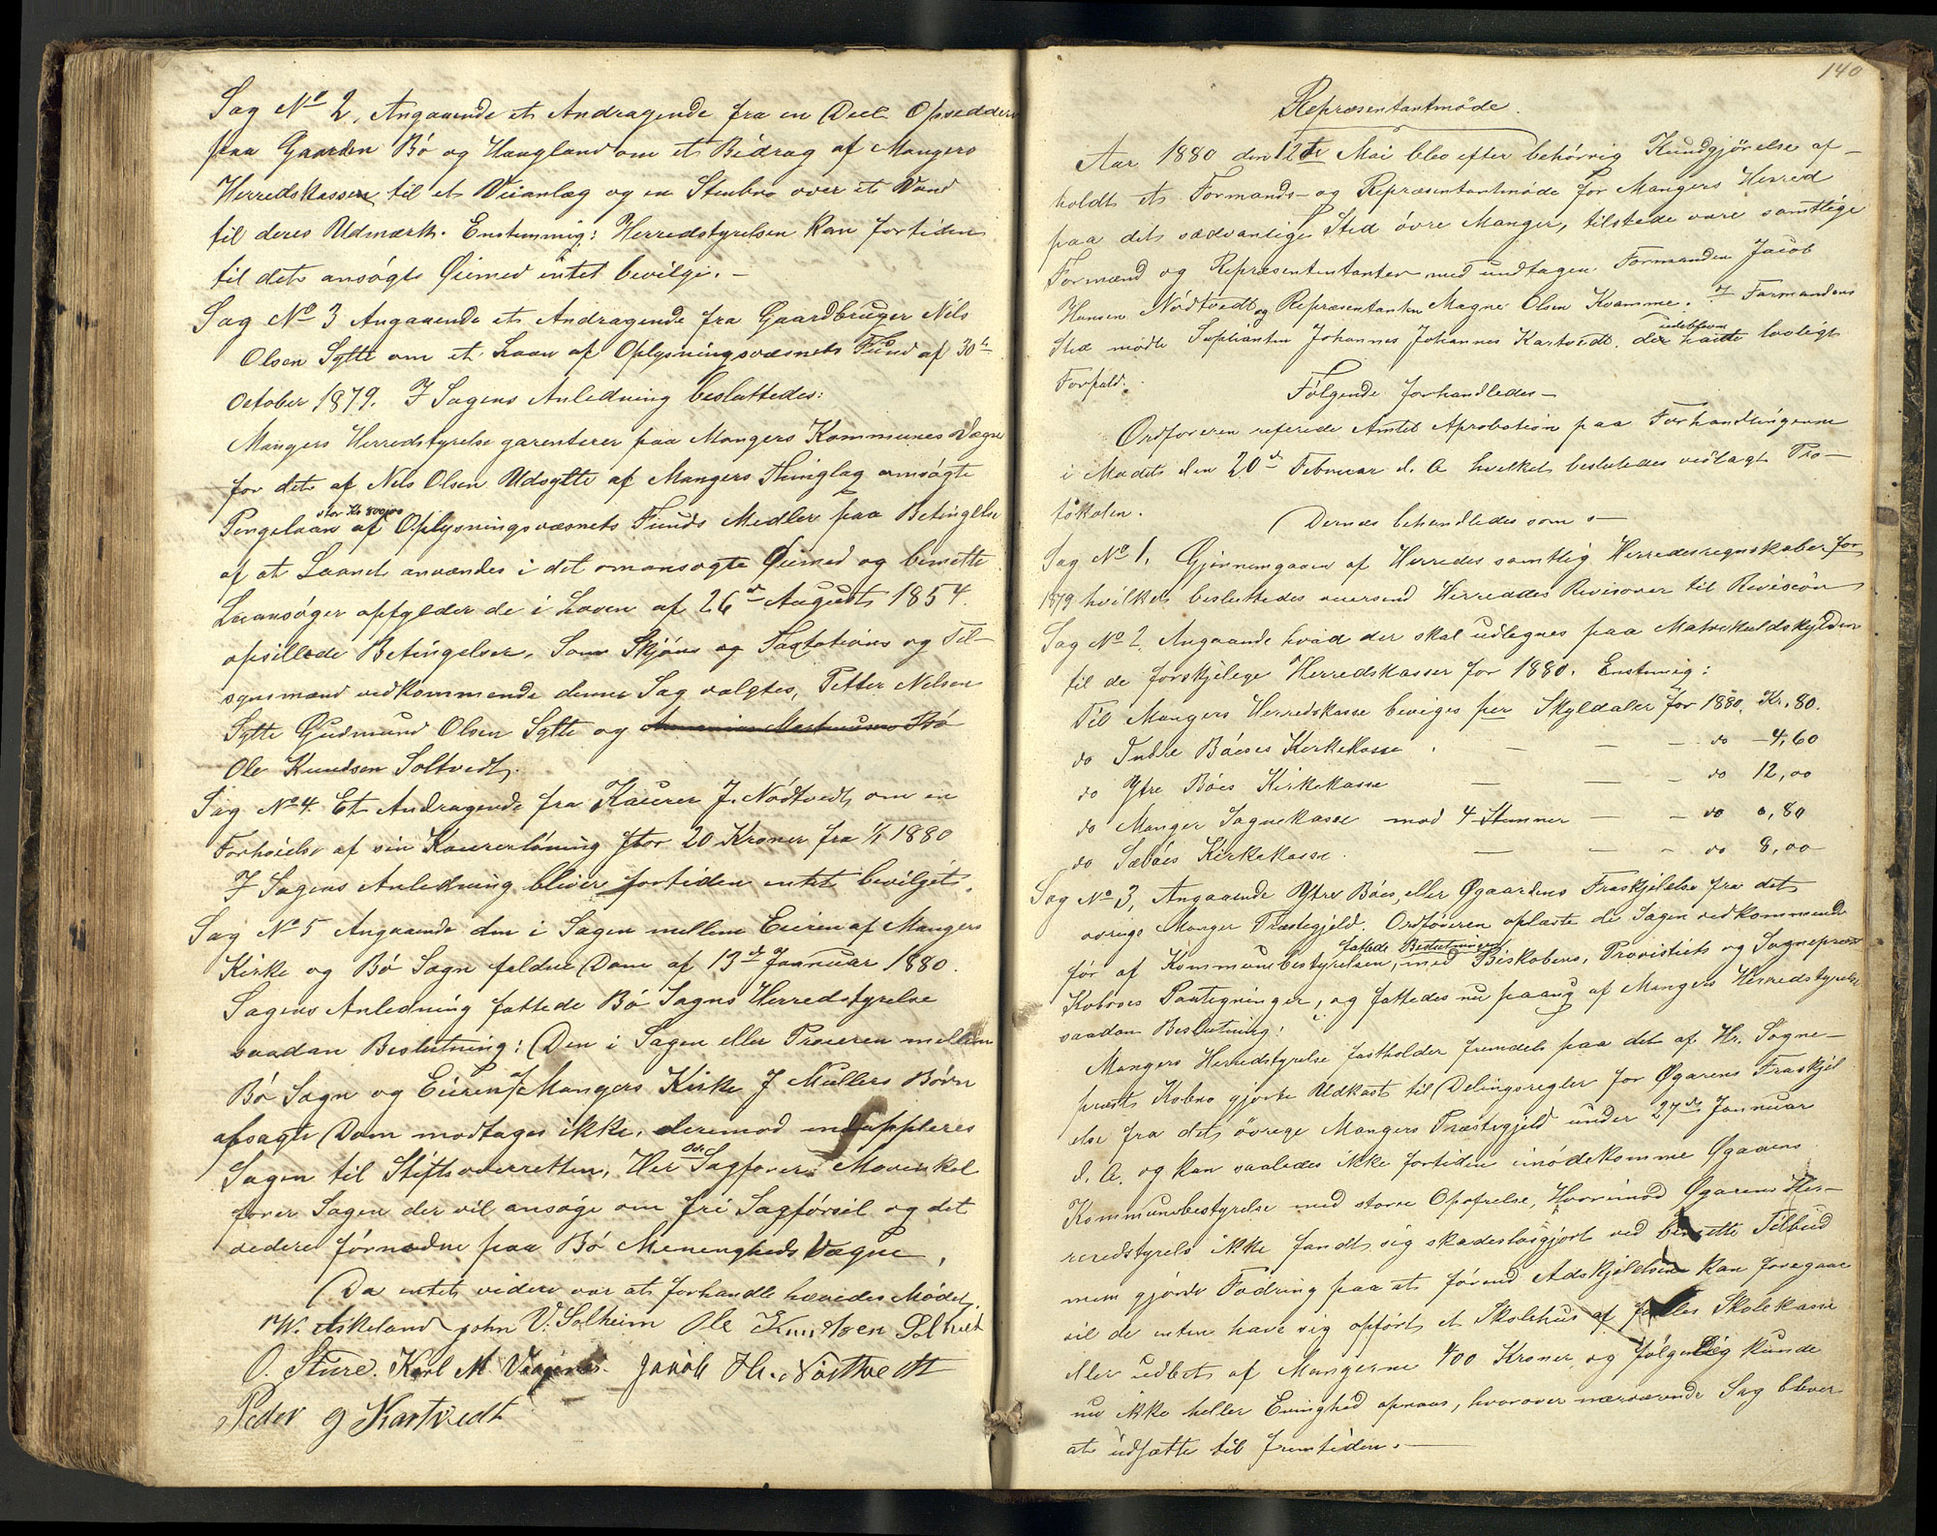 Sag No 2. Angaaende et Andragende fra en Deel Opsiddere
paa Gaarden Bö og Haugland om et Bidrag af Mangers
Herredskassen til et Veianlæg og en Stenbro over et Vand
til deres Udmærk. Enstemmig: Herredstyrelsen kan fortiden
til det ansögte Öiemed intet bevilge. –
Sag No 3 Angaaende et Andragende fra Gaardbruger Nils
Olsen Sylte om et Laan af Oplysningsvæsnets Fund af 30te
October 1879. I Sagens Anledning besluttedes:
Mangers Herredstyrelse garenterer paa Mangers Kommunes Vægne
for det af Nels Olsen Udsylte af Mangers Thinglag ansögte
Pengelaan stor Kr 800,00 af Oplysningsvæsnets Funds Medler paa Betingelse
af at Laanet anvændes i det omansøgte Öiemed og bemelte
Laansöger opfylder de i Loven af 26de Augusts 1854
opsillede Betingelser. Som Skjöns og Taxtations og Til-
synsmænd vedkommende denne Sag valgtes, Petter Nelsen
Sylte Gudmund Olsen Sylte og
Ole Knudsen Soltvedt.
Sag No 4. Et Andragende fra Kaurer J. Nödtvedt om en
Forhöielse af sin Kaurerlöning stor 20 Kroner fra 1/1 1880
I Sagens Anledning bliver fortiden intet bevilget.
Sag No 5 Angaaende den i Sagen mellem Eieren af Mangers
Kirke og Bö Sogn faldne Dom af 13de Januar 1880.
Sagens Anledning fattede Bö Sogns Herredstyrelse
saadan Beslutning: Den i Sagen eller Proseren mellem
Bö Sogn og Eieren af Mangers Kirke J Mullers Börn
afsagte Dom modtages ikke, derimod indappleres
Sagen til Stiftsoverretten, Her ovr Sagförer Movinkel
förer Sagen der vil ansöge om fri Sagförsel og det
videre förnødne paa Bö Menengheds Vægne,
Da intet videre var at forhandle hævedes Mödet.
W. Askeland John V. Solheim Ole Knutsen Soltvet
O. Sture. Karl M. Jakob H. Nöttvedt
Peder G Kartvedt
140
Repræsentantmöde.
Aar 1880 den 12te Mai blev efter behörig Kundgjörelse af-
holdt et Formands- og Repræsentantmöde for Mangers Herred
paa det sædvanlige Sted övre Manger, tilstede vare samtlige
Formænd og Repræsententanter med undtagen Formanden Jacob
Hansen Nödtvedt og Repræsentanten Magne Olsen Kvamme. I Formandens
Sted mödte Supliantin Johannes Johannes Kartvedt. der hatte lovligt
Forfald.
Fölgende forhandledes –
Ordföreren referede Amtets Aprobation paa Forhandlingerne
i Mødet den 20de Februar d. A. hvilket beslutedes vedlagt Pro-
tokolen.
Dernæs behandledes som: –
Sag No 1. Gjennemgaaen af Herredes samtlig Herredesregnskaber for
1879 hvilket besluttedes oversend Herreddes Revisorer til Revision
Sag No 2. Angaande hvad der skal udlegnes paa Matrikuldskylden
til de forskjelege Herredskasser for 1880. Enstmig:
Til Mangers Herredskasse beviges per Skyldaler for 1880. Kr. 80.
do Indre Böeses Kirkekasse . — — – do – 4,60
do Ytre Böes Kirkekasse — — – do 12,00
do Manger Sognekasse mod 4 Stemmer — – do 0,80
do Sæböes Kirkekasse. — — – do 8,00
Sag No 3, Angaaende Ytre Böes, eller Øgaardens Fraskjelelse fra det
övrige Manger Præstegjeld. Ordföreren oplæste de Sagen vedkommende
för af Kommunebestyrelsen, fattede Beslutninger med Biskobens, Provistiets og Sognepræst
Kobroes Paategninger, og fattedes nu paany af Mangers Herredstyrelse
saadan Beslutning:
Mangers Herredstyrelse fastholder fremdels paa det af Hr. Sogne-
præst Kobro gjorte Udkast til Delingsregler for Øgarens Fraskjel
else fra det övrege Mangers Præstegjeld under 27de Januar
d. A. og kan saaledes ikke fortiden imödekomme Øgarens
Kommunebestyrelse med större Opofrelse, Hvorimod Øgarens Her-
reredstyrels ikke fandt sig skadeslösgjort ved bemelte Tilbud
men gjorde Fodring paa at förend Adskjelelsen kan foregaa
vil de enten have sig opfört et Skolehus af fælles Skolekasse
eller udbet af Mangerne 400 Kroner, og fölgelig kunde
nu ikke heller Eninghed opnaaes, hvorover nærværende Sag blever
at udsætte til fremtiden. —